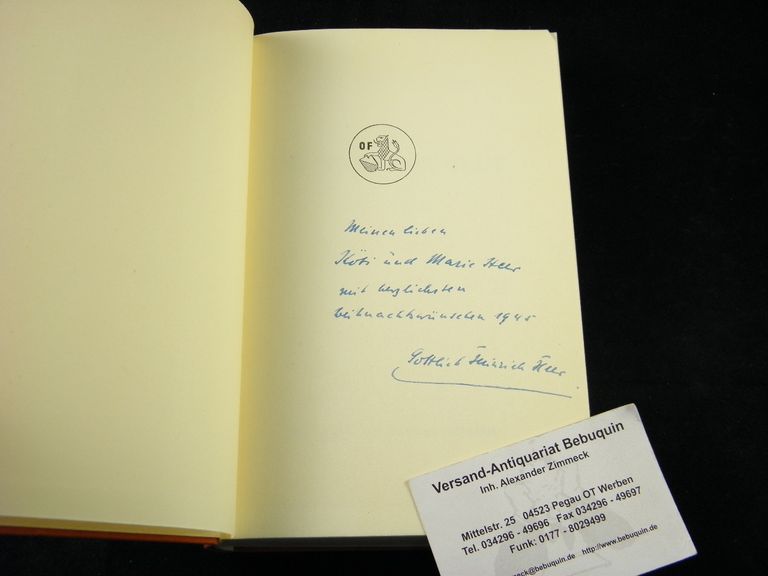 OF
Meinen lieben
Köbi und Marie Heer
mit herzlichsten
Weihnachtswünschen 1945
Gottlieb Heinrich Heer.
Versand-Antiquariat Bebuquin
Inh. Alexander Zimmeck
Mittelstr. 25 04523 Pegau OT Werben
Tel. 034296 - 49696 Fax 034296 - 49697
Funk: 0177 - 8029499
meck@bebuquin.de http://www.bebuquin.de